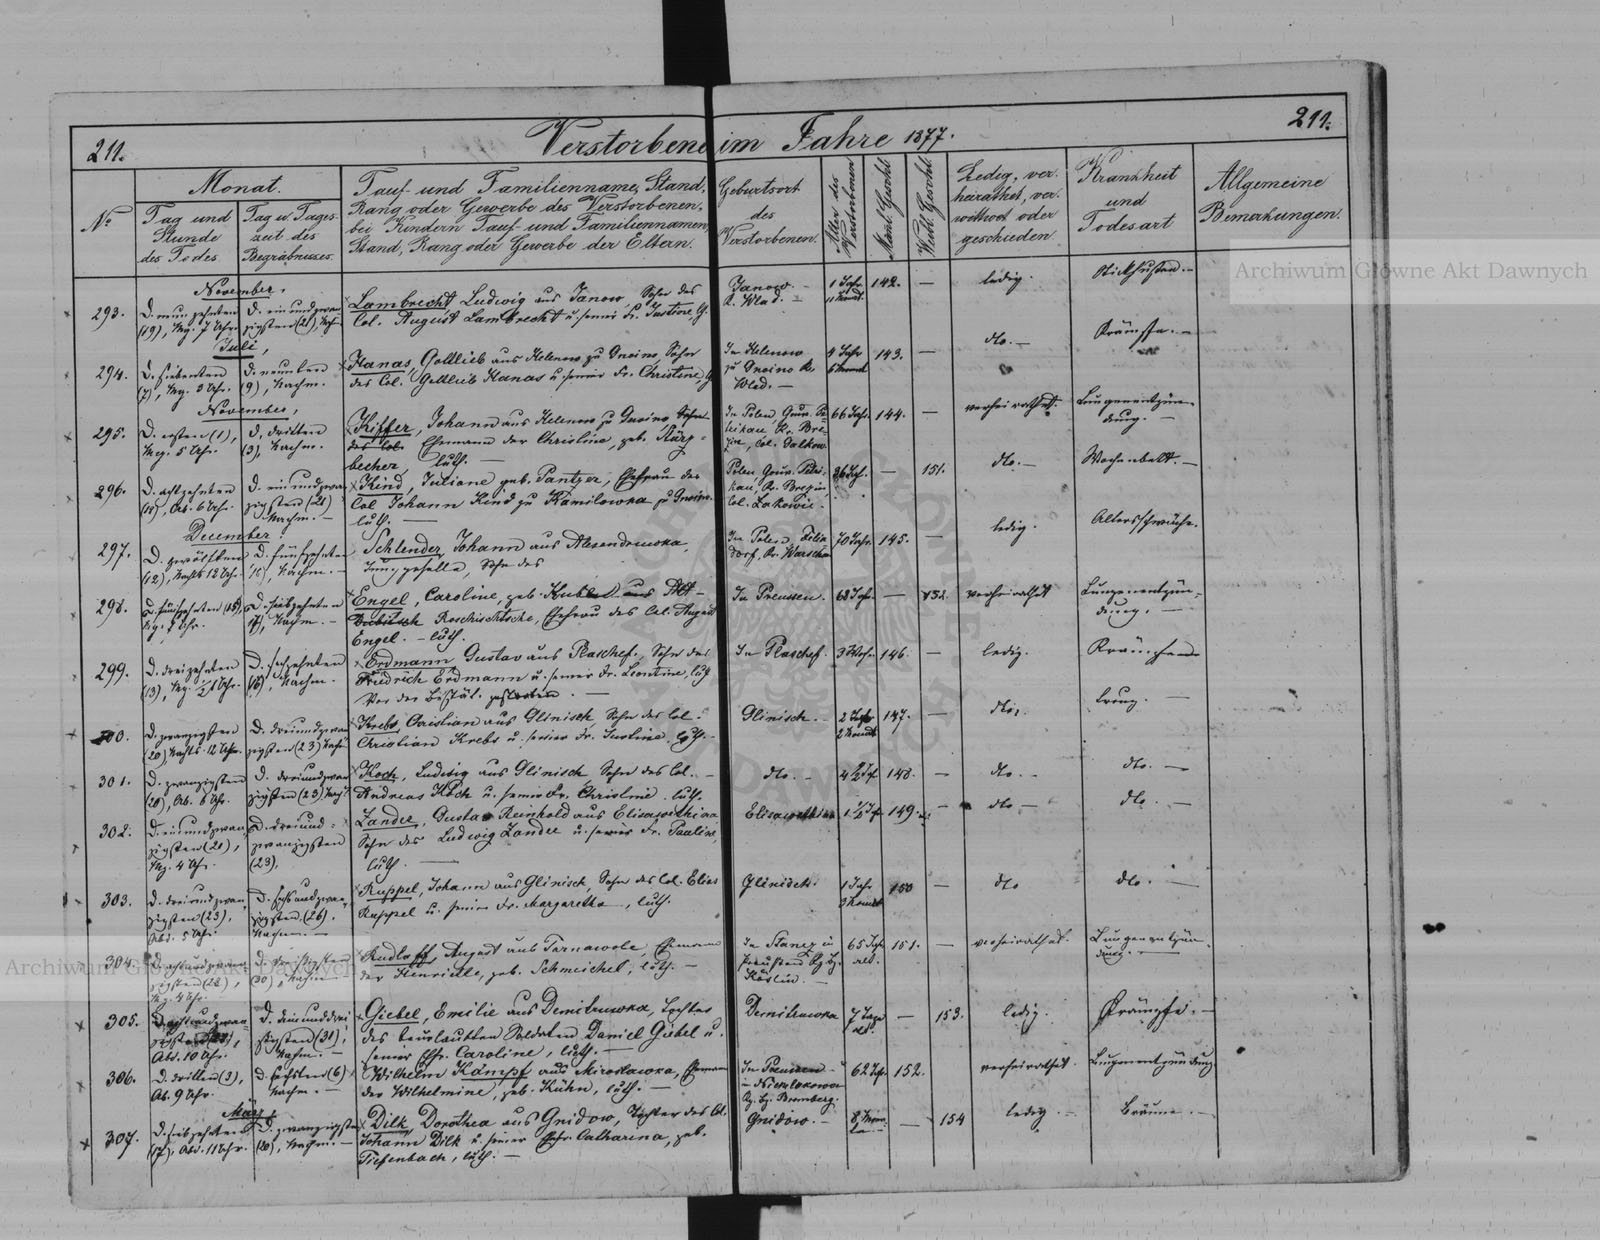 211.
Verstorbene im Jahre 1877.
211.
No
Monat.
Tag und Stunde des Todes.
Tag u. Tages-zeit des Begräbnisses.
Tauf- und Familienname, Stand,
Rang oder Gewerbe des Verstorbenen,
bei Kindern Tauf- und Familiennamen,
Stand, Rang oder Gewerbe der Eltern.
Geburtsort
des
Verstorbenen.
Alter des Verstorbenen
Männl. Geschl.
Weibl. Geschl.
Ledig, ver-
heirathet, ver-
wittwet oder
geschieden
Krankheit
und
Todesart
Allgemeine
Bemerkungen.
Archiwum Główne Akt Dawnych
November.
293.
D. neunzehnten
(19), Mrg. 7 Uhr.
D. einundzwan-
zigsten (21), Nachm.
Lambrecht, Ludwig aus Janow, Sohn des
Col. August Lambrecht u. seiner Fr. Justine,
Janow.
K. Wlad.
1 Jahr
11 Monat.
142.
—
ledig.
Stickhusten.
Juli,
294.
D. siebenten
(7), Mrg. 3 Uhr.
D. neunten
(9), Nachm.
Hanas, Gottlieb aus Helenow zu Gnoino, Sohn
des Col. Gottlieb Hanas u. seiner Fr. Christine,
In Helenow
zu Gnoino K.
Wlad. —
4 Jahr
6 Monat
143.
—
dto. —
Krämpfe.
November,
295.
D. ersten (1),
Mrg. 5 Uhr.
D. dritten
(3), Nachm.
Kiffer, Johann aus Helenow zu Gnoino, Sohn
des Col. Ehemann der Christine, geb. Stärz-
becher, luth.
In Polen, Gouv. Pe-
trikau, Kr. Bre-
zin, Col. Galkow
66 Jahr.
144.
—
verheirathet.
Lungenentzün-
dung. —
296.
D. achtzehnten
(18), Ab. 6 Uhr.
D. einundzwan-
zigsten (21)
Nachm. —
Kind, Juliane geb. Pantzer, Ehefrau des
Col. Johann Kind zu Kamilowka zu Gnoino.
luth. —
Polen, Gouv. Petri-
kau, Kr. Brezin,
Col. Lakowic.
36 Jahr.
—
151.
dto. —
Wochenbett. —
December.
297.
D. zwölften
(12), Nachts 12 Uhr.
D. fünfzehnten
(15), Nachm. —
Schlender, Johann aus Alexandrowka,
Junggeselle, Sohn des
In Polen, Felix
dorf, Kr. Warschau
70 Jahr.
145.
—
ledig.
Altersschwäche.
298.
D. fünfzehnten (15)
Mrg. Uhr.
D. siebzehnten
17), Nachm. —
Engel, Caroline, geb. Kublun aus Alt-
Roschischtsche, Ehefrau des Col. August
Engel. — luth.
In Preussen.
68 Jahr.
—
152.
verheirathet
Lungenentzün-
dung. —
299.
D. dreizehnten
(13), Mrg. 1/2 1 Uhr.
D. sechzehnten
(16), Nachm.
Erdmann, Gustav aus Plaschef. Sohn des
Friedrich Erdmann u. seiner Fr. Leontine, luth.
Vor der Bestät. gestorben. —
In Plaschef.
3 Woch.
146.
—
ledig.
Krämpfe
300.
D. zwanzigsten
(20), Nachts 12 Uhr.
D. dreiundzwan-
zigsten (23) Nachm.
Krebs, Christian aus Glinisch, Sohn des Col.
Christian Krebs u. seiner Fr. Justine, luth.
Glinisch.
2 Jahr
2 Monat
147.
—
dto.
Croup. —
301.
D. zwanzigsten
(20), Ab. 6 Uhr.
D. dreiundzwan-
zigsten (23) Nachm.
Koch, Ludwig aus Glinisch, Sohn des Col. —
Andreas Koch u. seiner Fr. Christine. luth.
dto. —
4 1/2 Jhr
148.
—
dto. —
dto. —
302.
D. einundzwan-
zigsten (21),
Mrg. 4 Uhr.
D. dreiund-
zwanzigsten
(23).
Zander, Gustav Reinhold aus Elisawethinaa,
Sohn des Ludwig Zander u. seiner Fr. Pauline,
luth. —
Elisawethina
1 1/2 Jhr
149.
—
dto —
dto. —
303.
D. dreiundzwan-
zigsten (23),
Abd. 5 Uhr.
D. sechsundzwan-
zigsten (26),
Nachm. —
Ruppel, Johann aus Glinisch, Sohn des Col. Elias
Ruppel u. seiner Fr. Margaretha, luth.
Glinisch.
1 Jahr
3 Monat
150
—
dto
dto. —
304.
D. achtundzwan-
zigsten (28),
Mrg. 4 Uhr.
D. dreissigsten
(30), Nachm. —
Rudloff, August aus Tarnawole, Ehemann
der Henriette, geb. Schmeichel, luth. —
65 Jahr
alt.
151.
—
verheirathet.
Lungenentzün-
dung. —
Archiwum Główne Akt Dawnych
305.
D. achtundzwan-
zigsten (28),
Abd. 10 Uhr.
D. einunddrei-
ssigsten (31),
Nachm. —
Giebel, Emilie aus Demitrowka, Tochter
des beurlaubten Soldaten Daniel Giebel u.
seiner Ehfr. Caroline, luth. —
Demitrowka
7 Tage
alt.
—
153.
ledig.
Krämpfe. —
306.
D. dritten (3),
Ab. 9 Uhr.
D. sechsten (6)
Nachm. —
Wilhelm Kämpf aus Miroslawka, Ehemann
der Wilhelmine, geb. Kühn, luth. —
In Preussen
Rg. bz. Bromberg.
62 Jhr.
152.
—
verheirathet.
Lungenentzündung.
März
307.
D. siebzehnten
(17), Abd. 11 Uhr.
D. zwanzigsten
(20), Nachm. —
Dilk, Dorothea aus Gnidow, Tochter des Col.
Johann Dilk u. seiner Ehfr. Catharina, geb.
Tiefenbach, luth. —
Gnidow. —
8 Mon.
—
154
ledig. —
Bräune. —